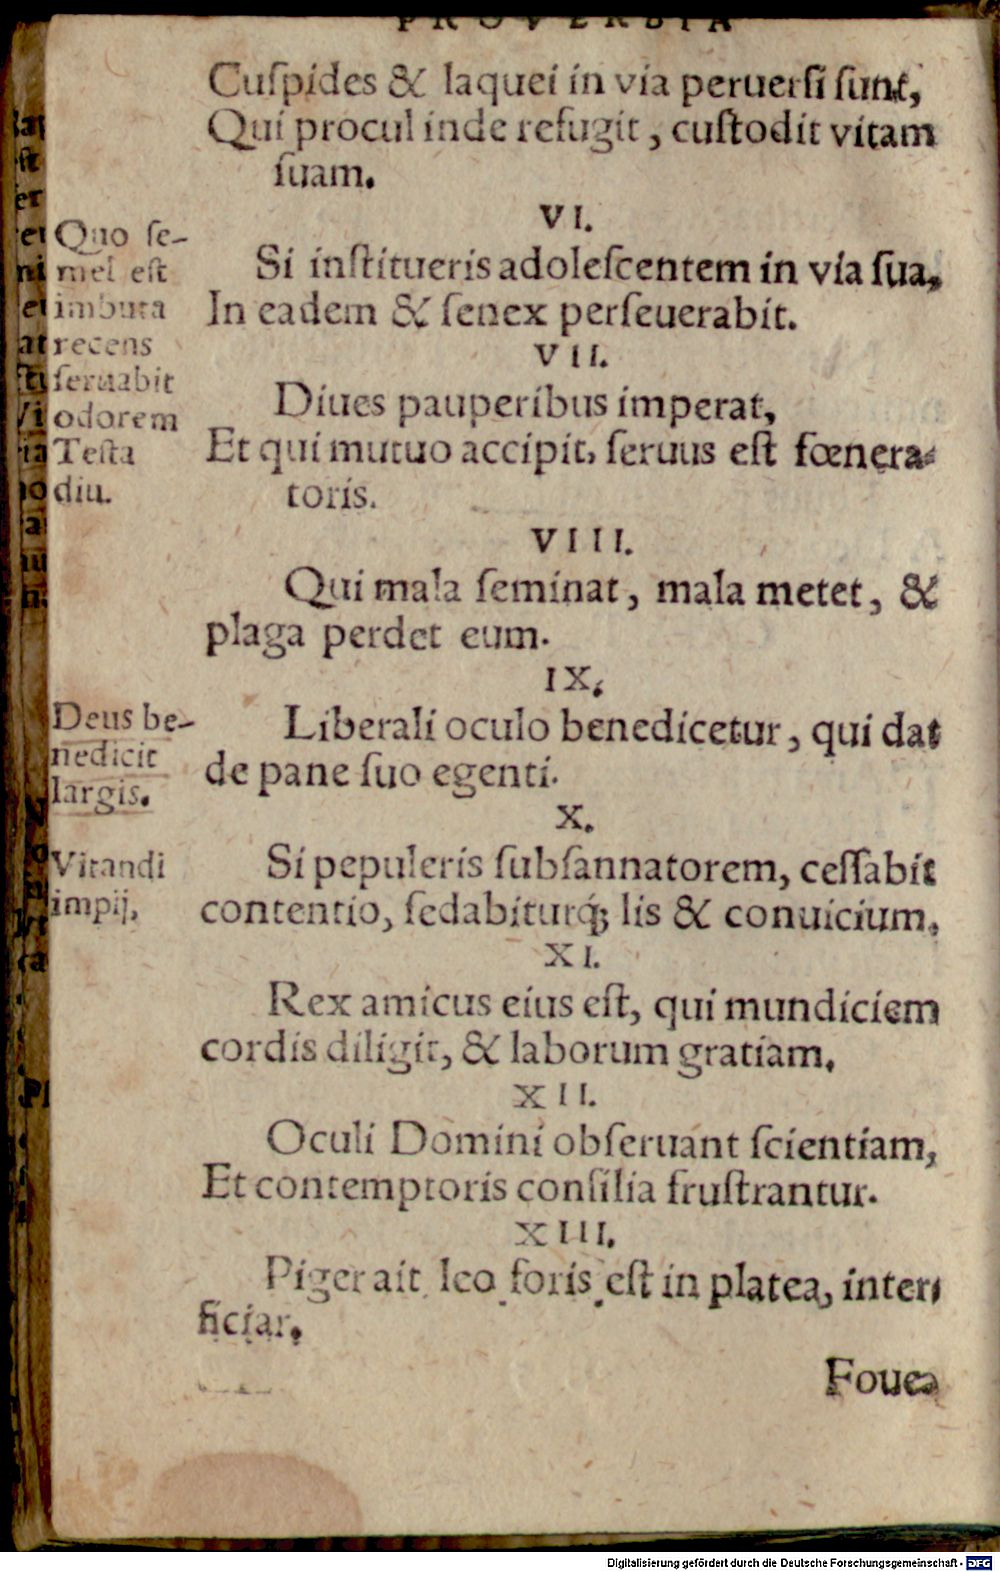 PROVERBIA
Cuſpides & laquei in via peruerſi ſunt,
Qui procul inde refugit, cuſtodit vitam
ſuam.
VI.
Quo ſe-
mel eſt
imbuta
recens
ſeruabit
odorem
Teſta
diu.
Si inſtitueris adoleſcentem in via ſua,
In eadem & ſenex perſeuerabit.
VII.
Diues pauperibus imperat,
Et qui mutuo accipit, ſeruus eſt fœnera-
toris.
VIII.
Qui mala ſeminat, mala metet, &
plaga perdet eum.
IX.
Deus be-
nedicit
largis.
Liberali oculo benedicetur, qui dat
de pane ſuo egenti.
X.
Vitandi
impij,
Si pepuleris ſubſannatorem, ceſſabit
contentio, ſedabiturq́; lis & conuicium.
XI.
Rex amicus eius eſt, qui mundiciem
cordis diligit, & laborum gratiam.
XII.
Oculi Domini obſeruant ſcientiam,
Et contemptoris conſilia fruſtrantur.
XIII.
Piger ait leo foris eſt in platea, inter-
ficiar.
Foue-
Digitalisierung gefördert durch die Deutsche Forschungsgemeinschaft - DFG